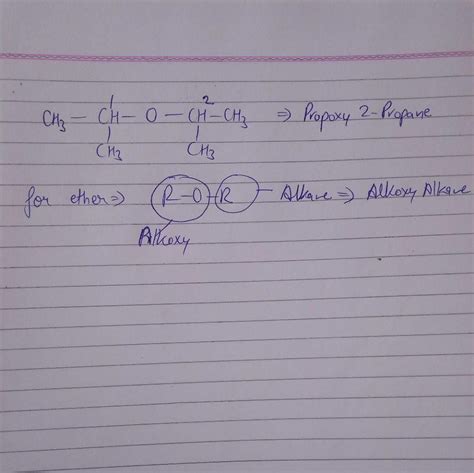 CH3 — CH — O — CH — CH3 ⇒ Propoxy 2-Propane
1 2
CH3 CH3
for ether ⇒ R — O — R — Alkane ⇒ Alkoxy Alkane
Alkoxy